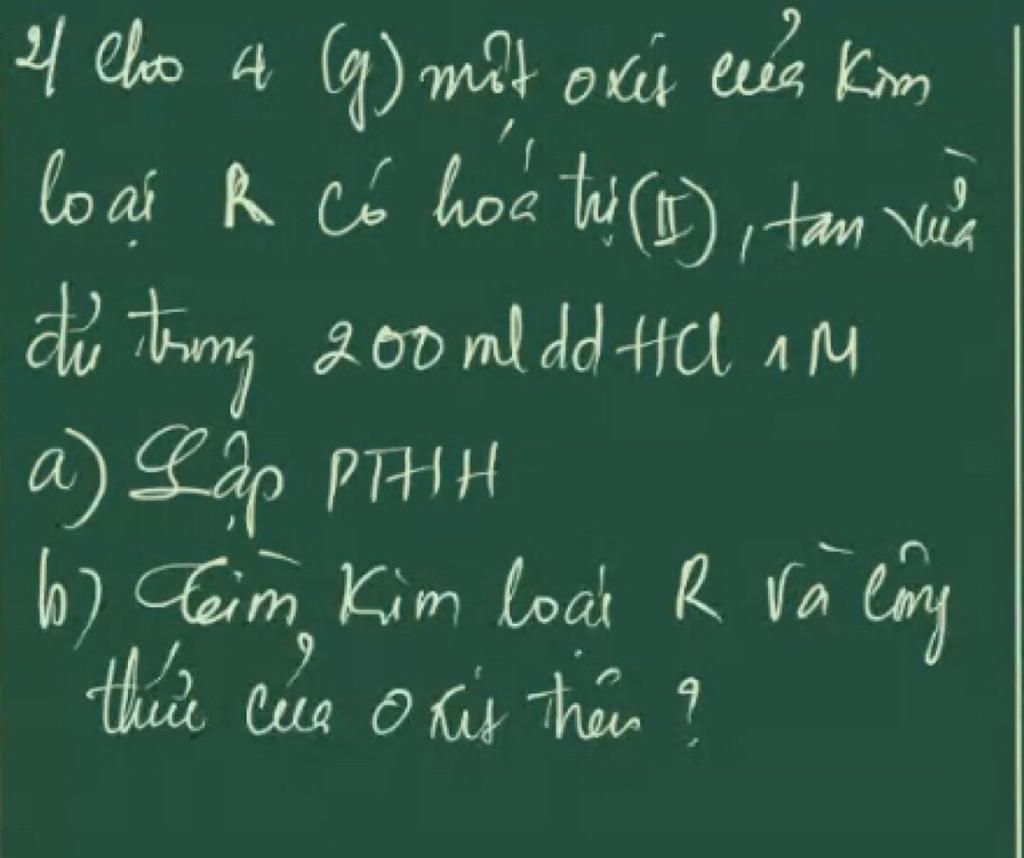 2/ Cho 4 (g) một oxit của Kim
loại R có hoá trị (II), tan vừa
đủ trong 200 ml dd HCl 1M
a) Lập PTHH
b) Tìm Kim loại R và công
thức của oxit trên ?